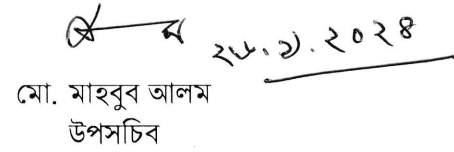 ২৮.১.২০২৪
মো. মাহবুব আলম
উপসচিব